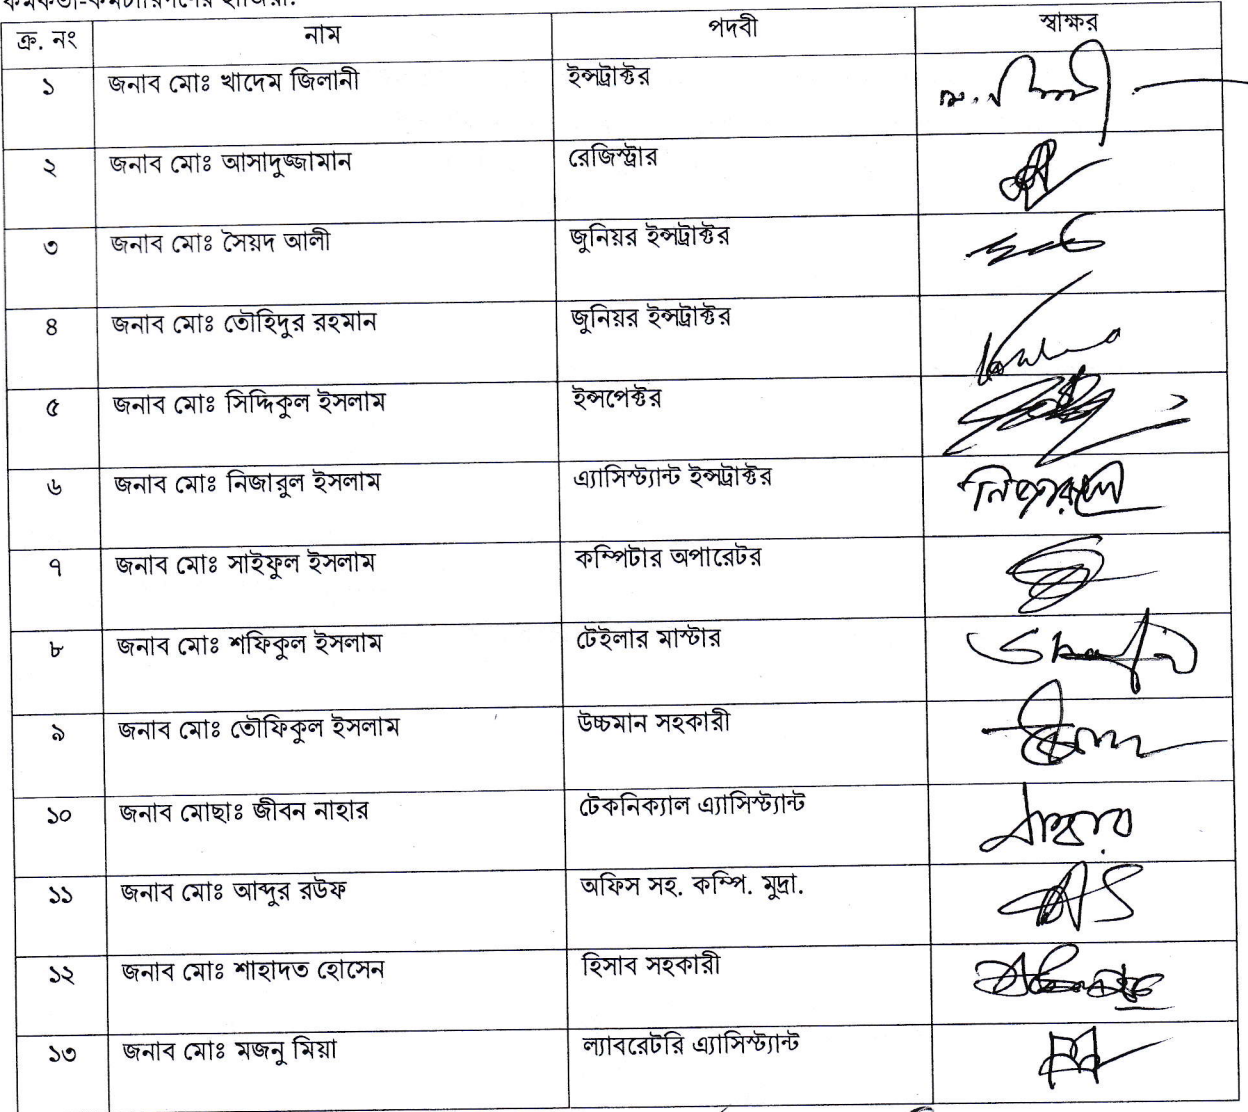 কর্মকর্তা-কর্মচারিগণের হাজিরা:
ক্র. নং নাম পদবী স্বাক্ষর
১ জনাব মোঃ খাদেম জিলানী ইন্সট্রাক্টর
২ জনাব মোঃ আসাদুজ্জামান রেজিস্ট্রার
৩ জনাব মোঃ সৈয়দ আলী জুনিয়র ইন্সট্রাক্টর
৪ জনাব মোঃ তৌহিদুর রহমান জুনিয়র ইন্সট্রাক্টর
৫ জনাব মোঃ সিদ্দিকুল ইসলাম ইন্সপেক্টর
৬ জনাব মোঃ নিজারুল ইসলাম এ্যাসিস্ট্যান্ট ইন্সট্রাক্টর নিজারুল
৭ জনাব মোঃ সাইফুল ইসলাম কম্পিটার অপারেটর
৮ জনাব মোঃ শফিকুল ইসলাম টেইলার মাস্টার
৯ জনাব মোঃ তৌফিকুল ইসলাম উচ্চমান সহকারী
১০ জনাব মোছাঃ জীবন নাহার টেকনিক্যাল এ্যাসিস্ট্যান্ট
১১ জনাব মোঃ আব্দুর রউফ অফিস সহ. কম্পি. মুদ্রা.
১২ জনাব মোঃ শাহাদত হোসেন হিসাব সহকারী
১৩ জনাব মোঃ মজনু মিয়া ল্যাবরেটরি এ্যাসিস্ট্যান্ট